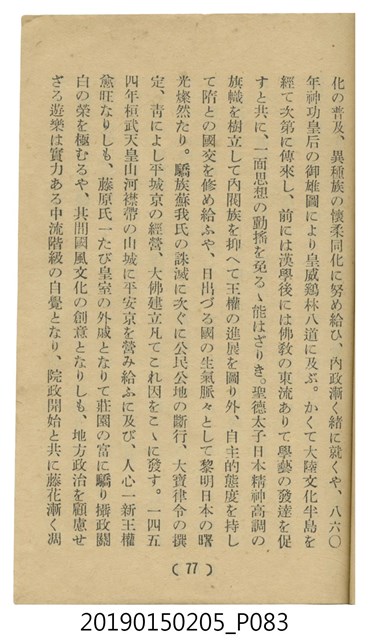 化の普及、異種族の懷柔同化に努め給ひ、內政漸く緖に就くや、八六〇
年神功皇后の御雄圖により皇威鷄林八道に及ぶ。かくて大陸文化半島を
經て次第に傳來し、前には漢學後には佛敎の東流ありて學藝の發達を促
すと共に、一面思想の動搖を免るゝ能はざりき。聖德太子日本精神高調の
旗幟を樹立して內閥族を抑へて王權の進展を圖り外、自主的態度を持し
て隋との國交を修め給ふや、日出づる國の生氣脈々として黎明日本の曙
光燦然たり。驕族蘇我氏の誅滅に次ぐに公民公地の斷行、大寶律令の撰
定、靑によし平城京の經營、大佛建立凡てこれ因をこゝに發す。一四五
四年桓武天皇山河襟帶の山城に平安京を營み給ふに及び、人心一新王權
黨旺なりしも、藤原氏一たび皇室の外戚となりて莊園の富に驕り攝政關
白の榮を極むるや、其間國風文化の創意となりしも、地方政治を顧慮せ
ざる遊樂は實力ある中流階級の自覺となり、院政開始と共に藤花漸く凋
(77)
20190150205_P083